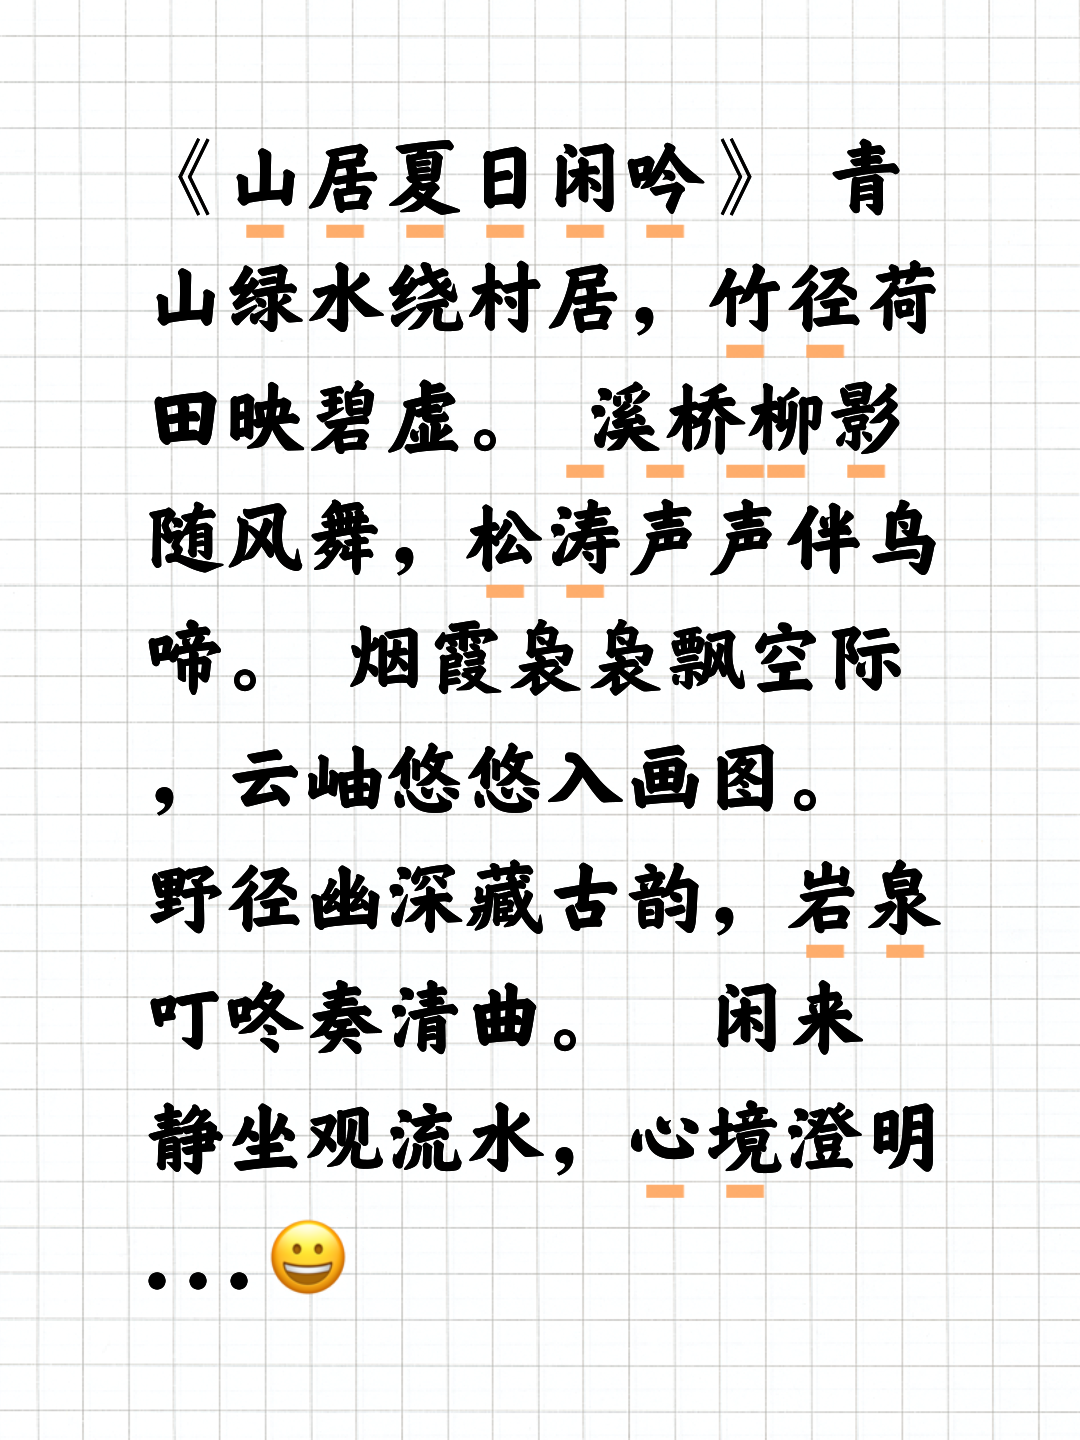 《山居夏日闲吟》 青
山绿水绕村居，竹径荷
田映碧虚。 溪桥柳影
随风舞，松涛声声伴鸟
啼。 烟霞袅袅飘空际
，云岫悠悠入画图。
野径幽深藏古韵，岩泉
叮咚奏清曲。 闲来
静坐观流水，心境澄明
...😀